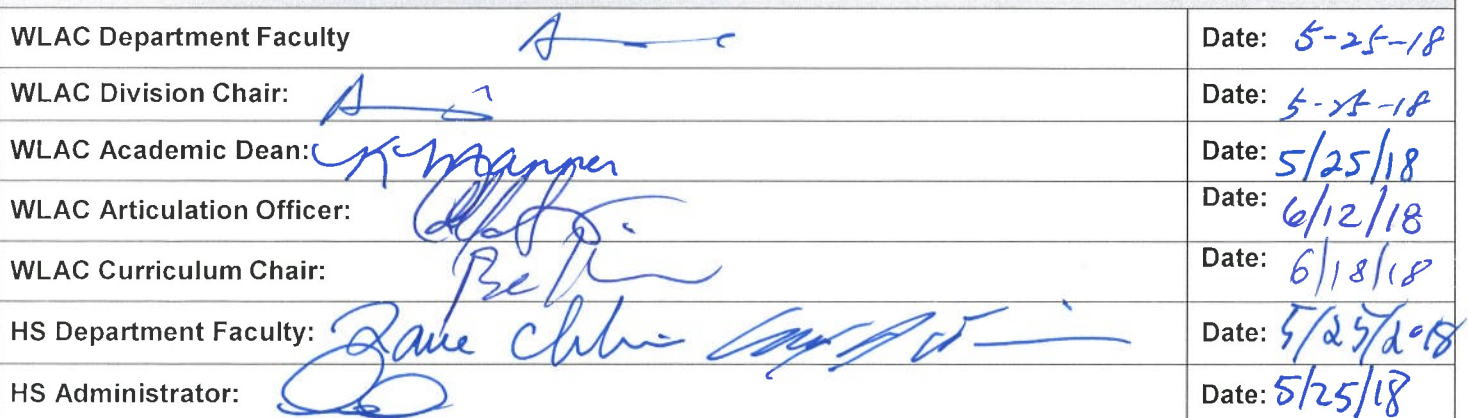 WLAC Department Faculty Date: 5-25-18
WLAC Division Chair: Date: 5-25-18
WLAC Academic Dean: Date: 5/25/18
WLAC Articulation Officer: Date: 6/12/18
WLAC Curriculum Chair: Date: 6/18/18
HS Department Faculty: Date: 5/25/2018
HS Administrator: Date: 5/25/18